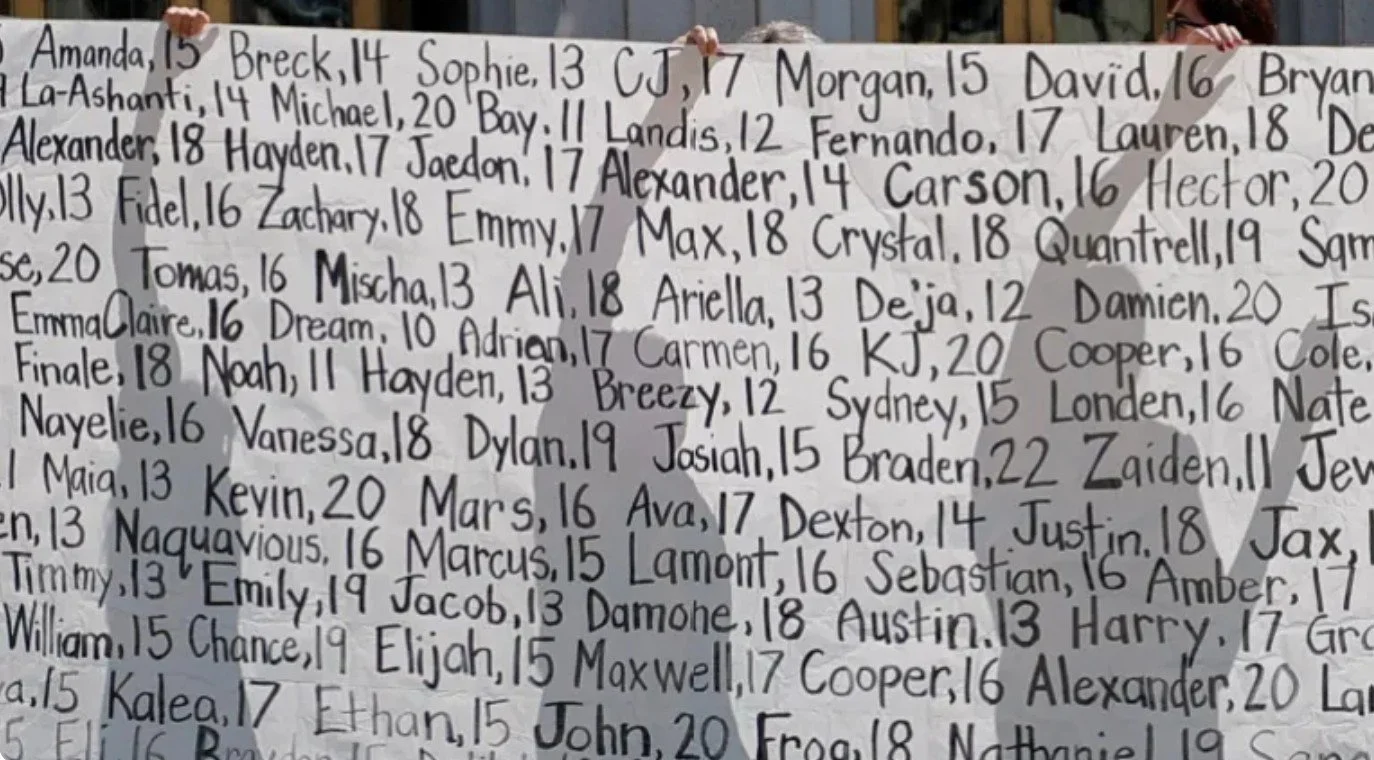 Amanda, 15 Breck, 14 Sophie, 13 CJ, 17 Morgan, 15 David, 16 Bryan
La-Ashanti, 14 Michael, 20 Bay, 11 Landis, 12 Fernando, 17 Lauren, 18 De
Alexander, 18 Hayden, 17 Jaedon, 17 Alexander, 14 Carson, 16 Hector, 20
lly, 13 Fidel, 16 Zachary, 18 Emmy, 17 Max, 18 Crystal, 18 Quantrell, 19 Sam
se, 20 Tomas, 16 Mischa, 13 Ali, 18 Ariella, 13 De'ja, 12 Damien, 20 Is
EmmaClaire, 16 Dream, 10 Adrian, 17 Carmen, 16 KJ, 20 Cooper, 16 Cole,
Finale, 18 Noah, 11 Hayden, 13 Breezy, 12 Sydney, 15 Londen, 16 Nate
Nayelie, 16 Vanessa, 18 Dylan, 19 Josiah, 15 Braden, 22 Zaiden, 11 Jew
1 Maia, 13 Kevin, 20 Mars, 16 Ava, 17 Dexton, 14 Justin, 18 Jax, 1
en, 13 Naquavious, 16 Marcus, 15 Lamont, 16 Sebastian, 16 Amber, 17
Timmy, 13 Emily, 19 Jacob, 13 Damone, 18 Austin, 13 Harry, 17 Gra
William, 15 Chance, 19 Elijah, 15 Maxwell, 17 Cooper, 16 Alexander, 20 Lan
a, 15 Kalea, 17 Ethan, 15 John, 20 Frog, 18 Nathaniel, 19
5 Eli, 16